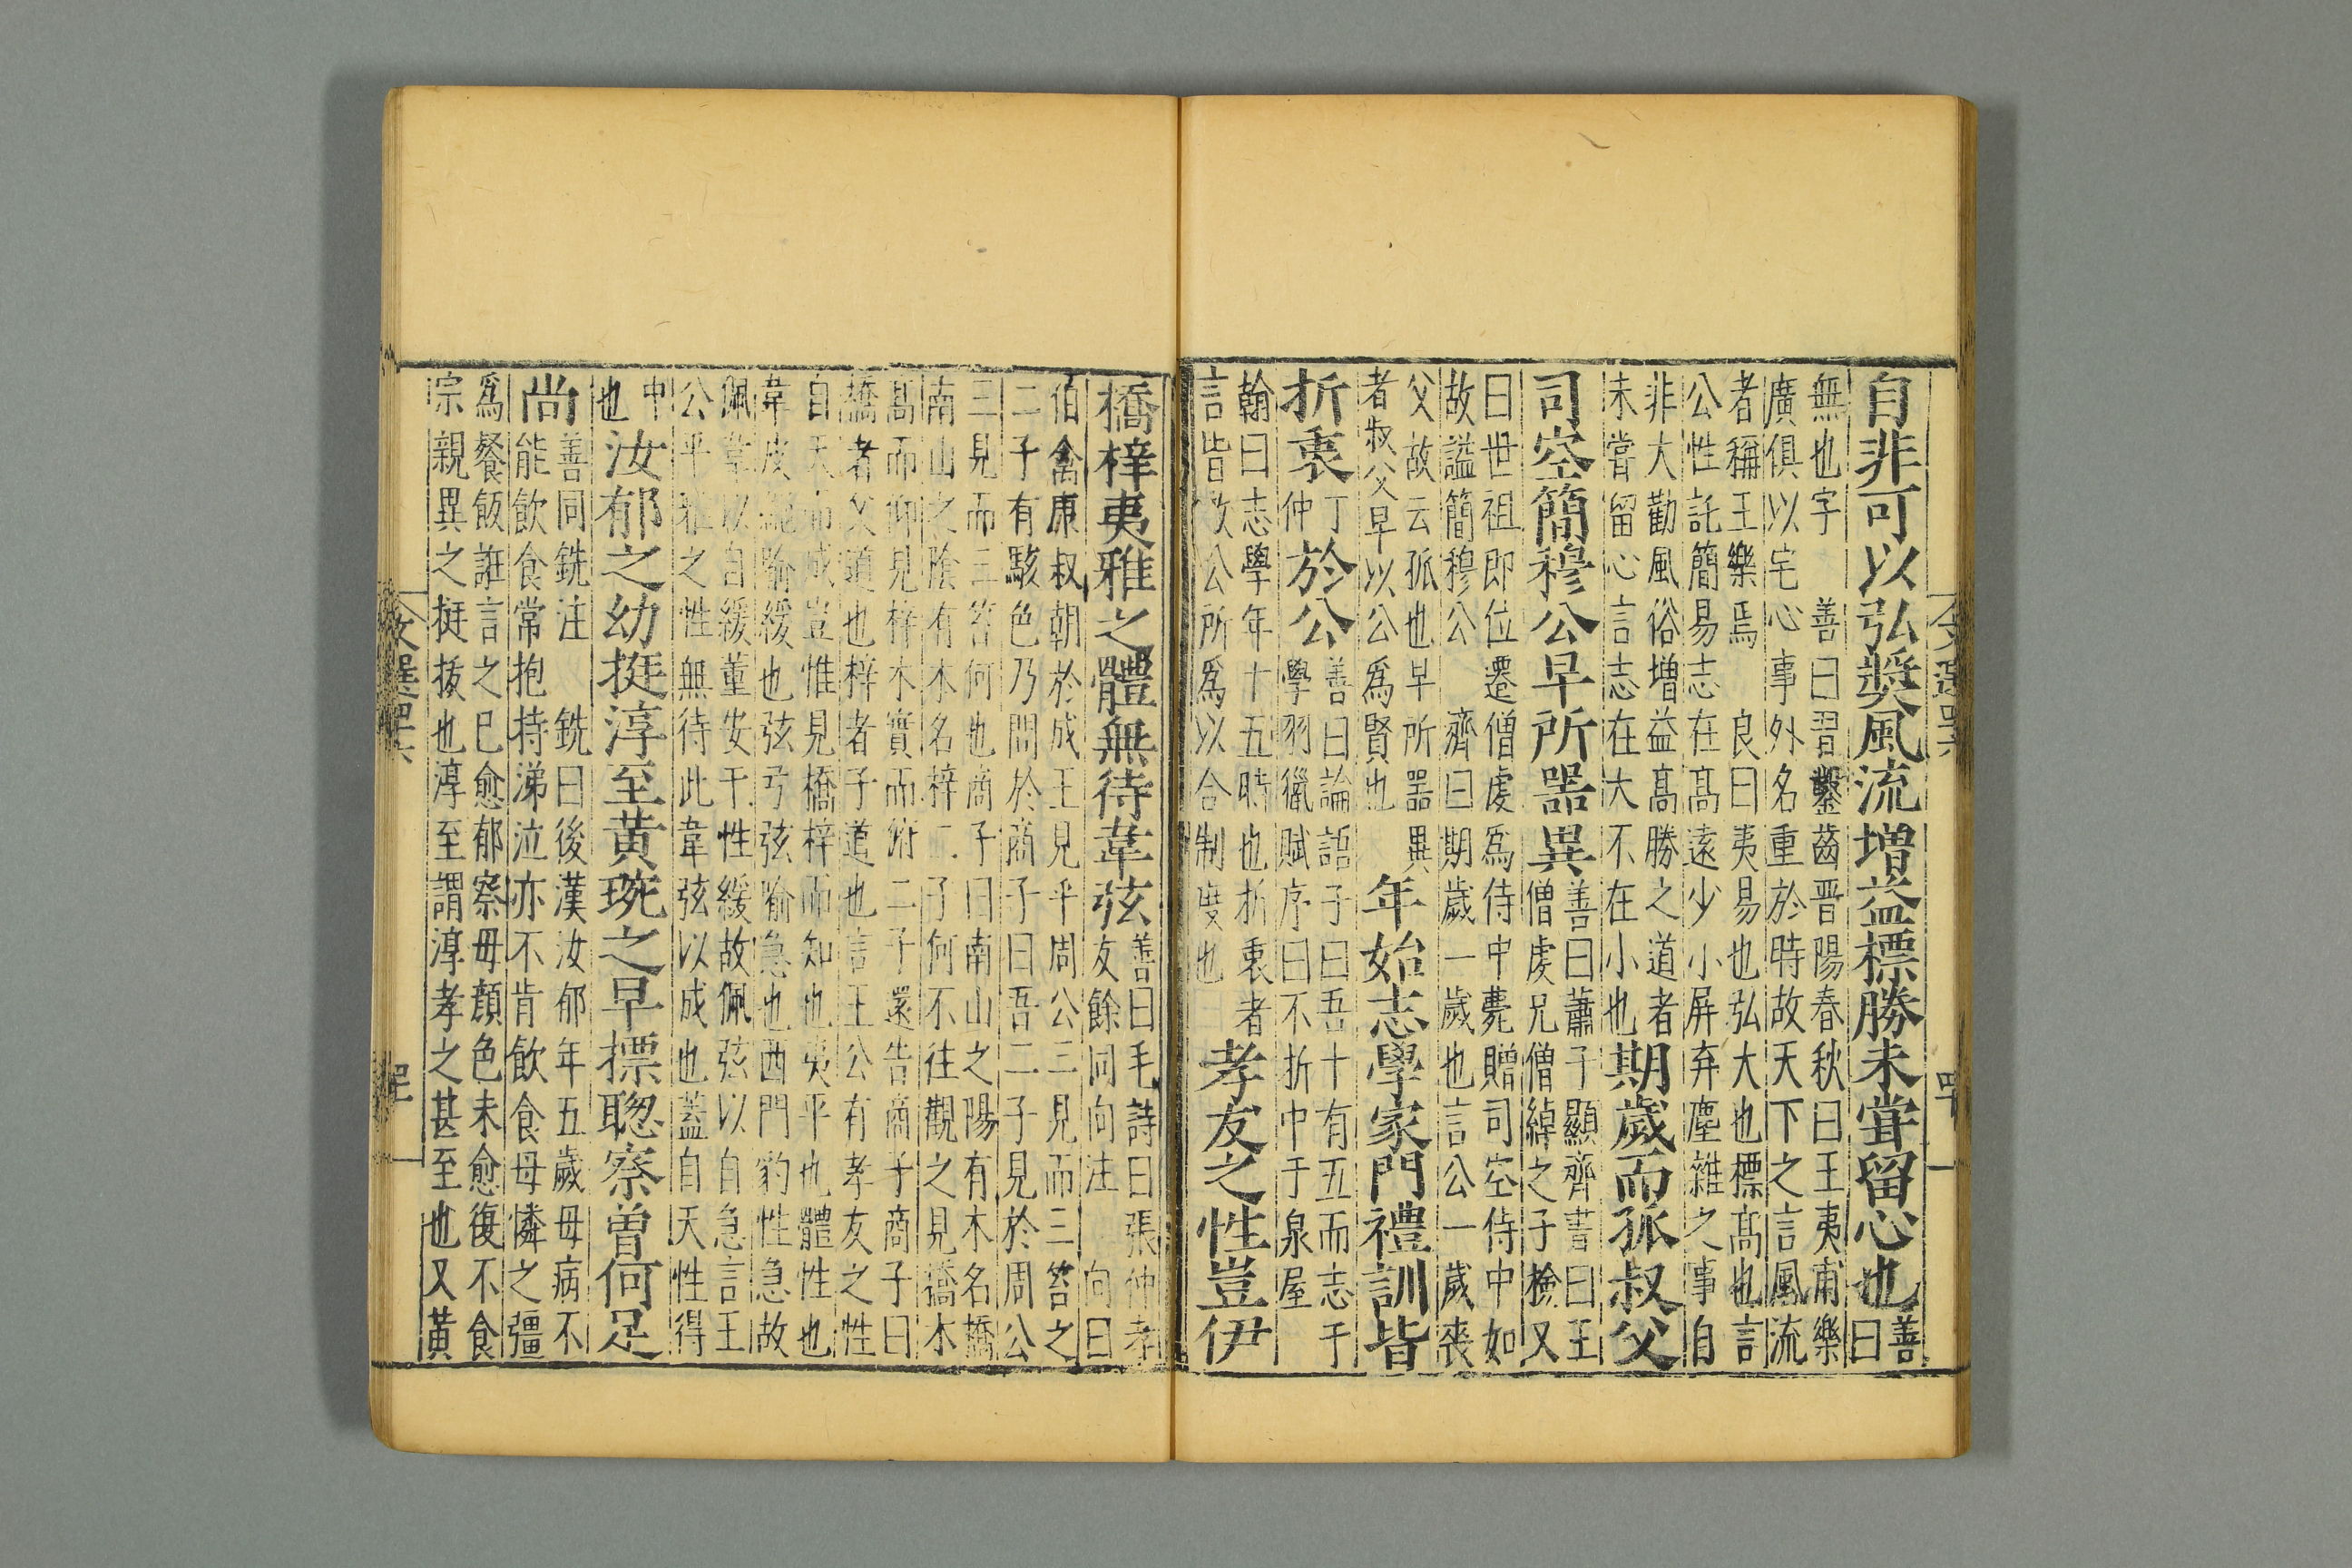 自非可以弘獎風流增益標勝未甞留心也善曰
無也字　善曰習鑿齒晋陽春秋曰王夷甫樂
廣俱以宅心事外名重於時故天下之言風流
者稱王樂焉　良曰夷易也弘大也標髙也言
公性託簡易志在髙遠少小屏弃塵雜之事自
非大勸風俗增益髙勝之道者
未甞留心言志在大不在小也期歲而孤叔父
司空簡穆公早所器異善曰蕭子顯齊書曰王
僧虔兄僧綽之子檢又
曰世祖即位遷僧虔爲侍中薨贈司空侍中如
故謚簡穆公　濟曰期歲一歲也言公一歲喪
父故云孤也早所器異
者叔父早以公爲賢也　年始志學家門禮訓皆
折衷丁
仲於公善曰論語子曰吾十有五而志于
學羽獵賦序曰不折中于泉屋
翰曰志學年十五時也折衷者
言皆改公所爲以合制度也孝友之性豈伊
橋梓夷雅之體無待韋弦善曰毛詩曰張仲孝
友餘同向注　向曰
伯禽康叔朝於成王見乎周公三見而三笞之
二子有駭色乃問於商子曰吾二子見於周公
三見而三笞何也商子曰南山之陽有木名橋
南山之陰有木名梓二子何不往觀之見橋木
髙而仰見梓木實而俯二子還告商子商子曰
橋者父道也梓者子道也言王公有孝友之性
自天而成豈惟見橋梓而知也夷平也體性也
韋皮繩喻緩也弦弓弦喻急也西門豹性急故
佩韋以自緩董安于性緩故佩弦以自急言王
公平雅之性無待此韋弦以成也蓋自天性得
中
也汝郁之幼挺淳至黃琬之早摽聦察曾何足
尚善同銑注　銑曰後漢汝郁年五歲母病不
能飲食常抱持涕泣亦不肯飲食母憐之彊
爲餐飯誑言之已愈郁察母顔色未愈復不食
宗親異之挺拔也淳至謂淳孝之甚至也又黃